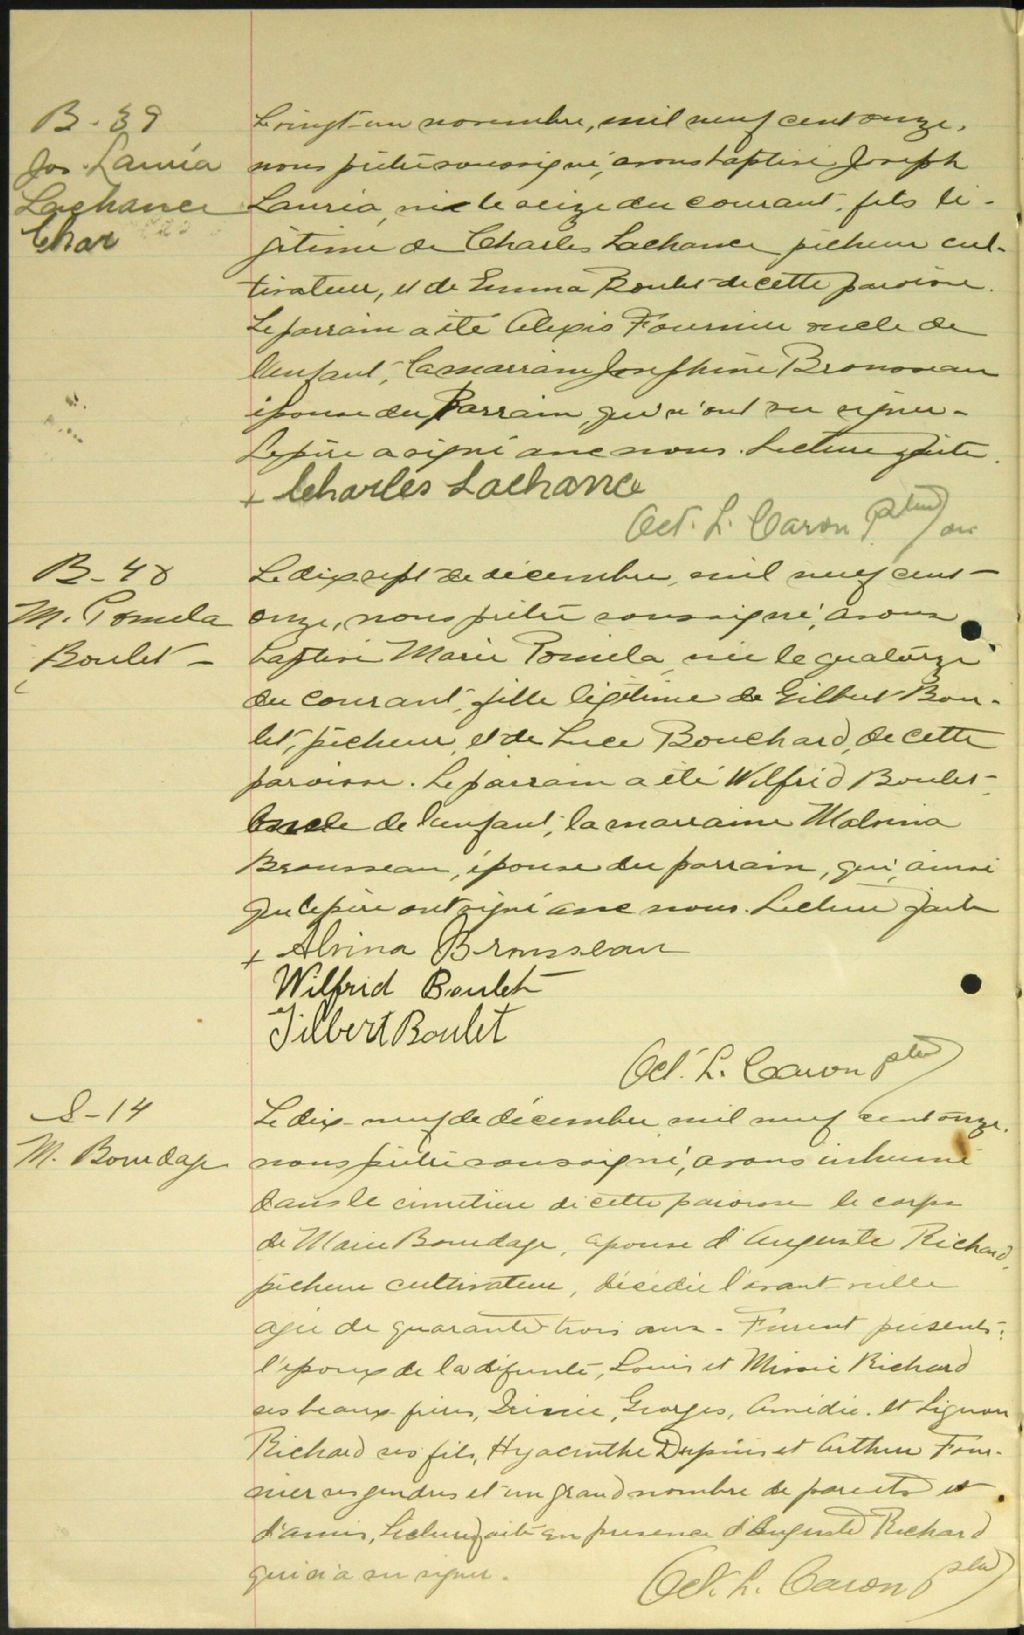 B-39
Jos. Lauria
Lachance
Char
Le vingt-un novembre, mil neuf cent onze,
nous prêtre soussigné, avons baptisé Joseph
Lauria, né le seize du courant, fils lé-
gitime de Charles Lachance pêcheur cul-
tivateur, et de Emma Boulet de cette paroisse.
Le parrain a été Alexis Fournier oncle de
l'enfant, la marraine Josephine Brousseau
épouse du Parrain, qui n'ont su signer-
Le père a signé avec nous. Lecture faite.
+ Charles Lachance
Oct. L. Caron ptre
B-40
M. Pomela
Boulet-
Le dix sept de décembre, mil neuf cent-
onze, nous prêtre soussigné, avons
baptisé Marie Pomela, née le quatorze
du courant, fille légitime de Gilbert Bou-
let, pêcheur, et de Luce Bouchard, de cette
paroisse. Le parrain a été Wilfrid Boulet-
Oncle de l'enfant, la marraine Malvina
Brousseau, épouse du parrain, qui, ainsi
que le père ont signé avec nous. Lecture faite
+ Alvina Brousseau
Wilfrid Boulet
Gilbert Boulet
Oct. L. Caron ptre
S-14
M. Bourdage
Le dix-neuf de décembre mil neuf cent onze.
nous prêtre soussigné, avons inhumé
dans le cimetière de cette paroisse le corps
de Marie Bourdage, épouse d'Auguste Richard,
pêcheur cultivateur, décédée l'avant veille
agée de quarante trois ans- Furent présents:
l'époux de la défunte, Louis et Minie Richard
ses beaux-frères, Irénée, Georges, Amédée. et Liguori
Richard ses fils, Hyacinthe Dupuis et Arthur Four-
nier ses gendres et un grand nombre de parents et
d'amis, Lecture faite en présence d'Auguste Richard
qui n'a su signer.
Oct. L. Caron ptre